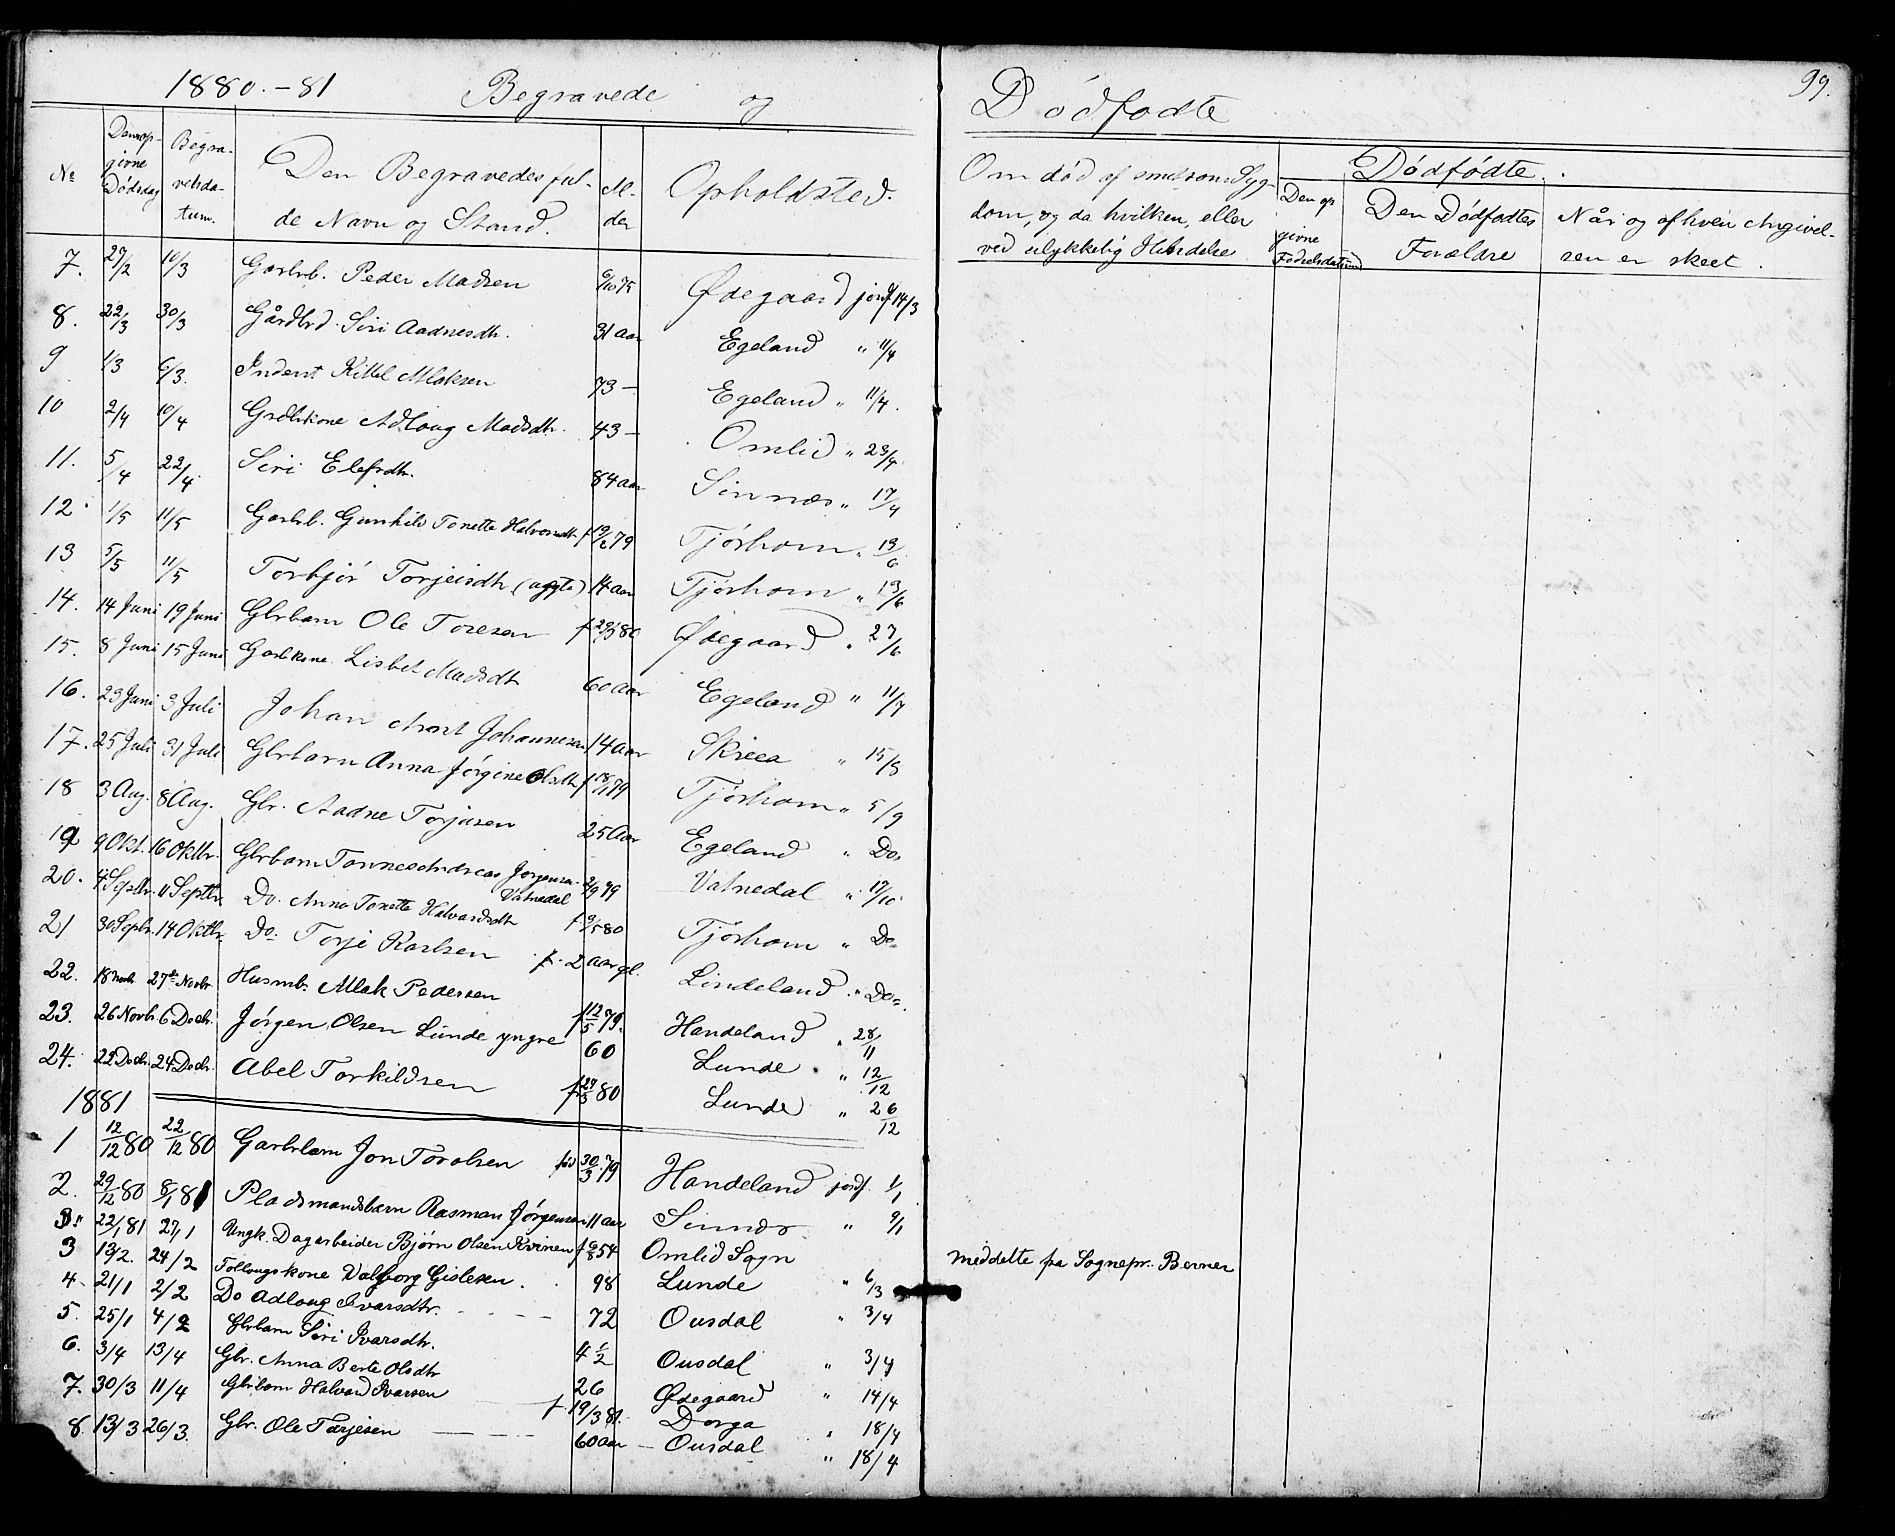 1880.-81 Begravede og Dödfødte 99.
No
Den opgivne Dödsdag
Begravelsdatum.
Den Begravedes fulde Navn og Stand.
Alder
Opholdsted.
Om död af smitsom Sygdom, og da hvilken, eller ved ulykkelig Hendelse
Dödfödte.
Den opgivne Fødselsdatum
Den Dödfødtes Forældre
Når og af hvem Angivelsen er skeet.
7. 27/2 10/3 Gaarbrb. Peder Madsen 75 Ødegaard jordf 14/3
8. 22/3 30/3 Gårdbrd. Siri Aadnesdtr. 31 aar Egeland " 11/4
9 1/3 6/3. Inderst Kittel Aslaksen 73 — Egeland " 11/4.
10 2/4 10/4 Grdbkone Adloug Madsdtr. 43 — Omlid " 23/4
11. 5/4 22/4 Siri Elefsdtr. 84 aar Sinnes " 17/4
12. 1/5 11/5 Garbrb. Gunhild Tonette Halvorsdtr f 79 Tjörhom " 13/6
13 5/5 11/5 Torbjör Torjeisdtr (ugift) 14 aar Tjörhom " 13/6
14. 14 Juni 19 Juni Gbrbarn Ole Toresen f 80 Ødegaard " 27/6
15. 8 Juni 15 Juni Garbkone Lisbet Madsdtr 60 aar Egeland " 11/7
16. 23 Juni 3 Juli Johan Johannesen 14 aar Skreea " 15/8
17. 25 Juli 31 Juli Gbrbarn Anna Jörgine Olsdtr f 79 Tjörhom " 5/9
18 3 Aug. 8 Aug. Gbr. Aadne Torjusen 25 Aar Egeland " Do.
19 9 Okt. 16 Oktbr. Gbrbarn Tonnes Andreas Jörgensen Vatnedal 79 Vatnedal " 17/10
20. 4 Septbr. 11 Septbr. Do. Anna Tonette Halvardsdtr f 9/5 80 Tjörhom " Do.
21 30 Septbr. 14 Oktbr. Do. Torje Karlsen f. 2 aar gl. Lindeland " Do.
22. 18 Novbr 27de Novbr. Husmb. Aslak Pedersen f 12/5 79. Handeland " 28/11
23. 26 Novbr. 6 Decbr. Jørgen Olsen Lunde yngre 60 Lunde " 12/12
24. 22 Decbr. 24 Decbr. Abel Torkildsen f 80 Lunde " 26/12
1881
1 12/12 80 22/12 80 Garbrbarn Jon Torolsen föd 30/3 79 Handeland jordf. 1/1
2. 29/12 80 8/1 81 Pladsmandsbarn Rasmus Jörgensen 11 aar Sinnes " 9/1
22/1 81 27/1 Ungk. Dagarbeider Björn Olsen Kvinen f 6/8 54 Omlid Sogn meddelte fra Sognepr. Berner
3 13/2. 24/2 Follougskone Valborg Gislesen. 98 Lunde " 6/3
4. 21/1 2/2 Do Adloug Ivarsdtr. 72 Ousdal " 3/4
5. 25/1 4/2 Gbrbarn Siri Ivarsdtr. 4 1/2 Ousdal " 3/4
6. 3/4 13/4 Gbr. Anna Berte Olsdtr 26 Ødegaard " 14/4
7. 30/3 11/4 Gbrbarn Halvard Ivarsen f 19/3 81. Dorga " 18/4
8. 13/3 26/3. Gbr. Ole Tarjesen 60 aar Ousdal " 18/4